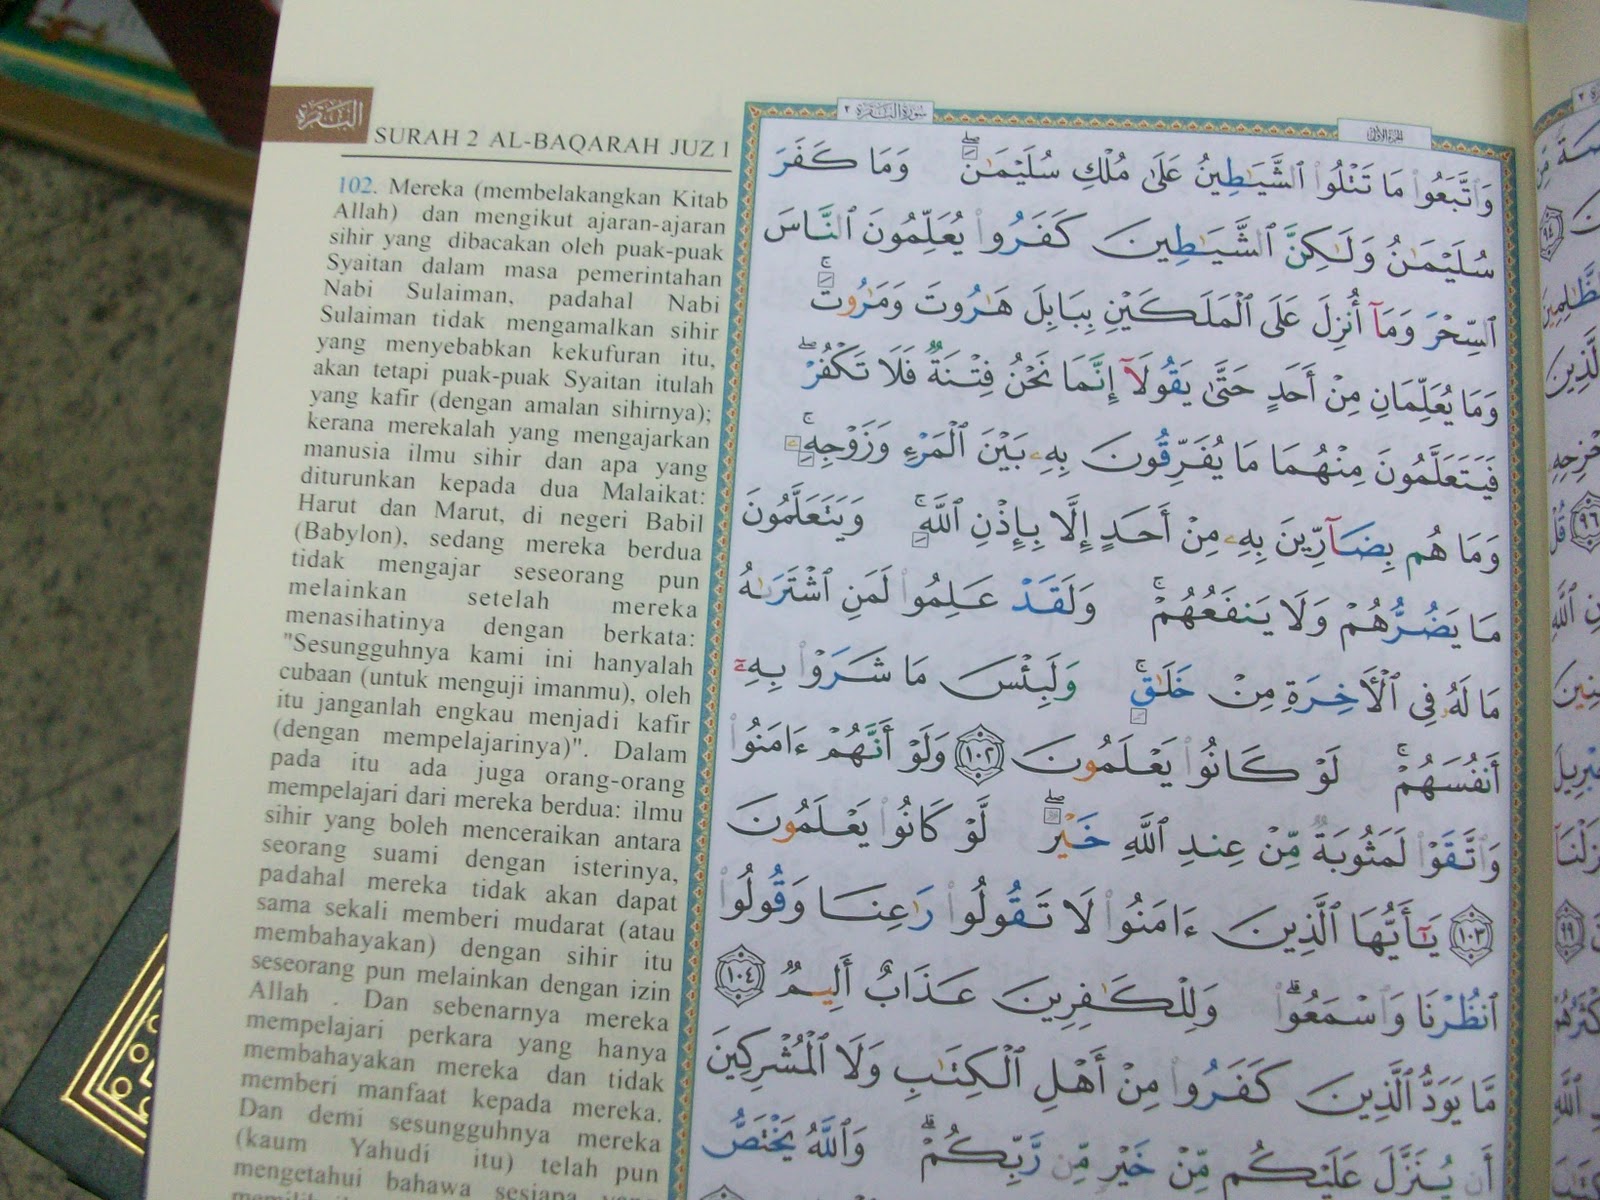 البقرة
SURAH 2 AL-BAQARAH JUZ 1
102. Mereka (membelakangkan Kitab
Allah) dan mengikut ajaran-ajaran
sihir yang dibacakan oleh puak-puak
Syaitan dalam masa pemerintahan
Nabi Sulaiman, padahal Nabi
Sulaiman tidak mengamalkan sihir
yang menyebabkan kekufuran itu,
akan tetapi puak-puak Syaitan itulah
yang kafir (dengan amalan sihirnya);
kerana merekalah yang mengajarkan
manusia ilmu sihir dan apa yang
diturunkan kepada dua Malaikat:
Harut dan Marut, di negeri Babil
(Babylon), sedang mereka berdua
tidak mengajar seseorang pun
melainkan setelah mereka
menasihatinya dengan berkata:
"Sesungguhnya kami ini hanyalah
cubaan (untuk menguji imanmu), oleh
itu janganlah engkau menjadi kafir
(dengan mempelajarinya)". Dalam
pada itu ada juga orang-orang
mempelajari dari mereka berdua: ilmu
sihir yang boleh menceraikan antara
seorang suami dengan isterinya,
padahal mereka tidak akan dapat
sama sekali memberi mudarat (atau
membahayakan) dengan sihir itu
seseorang pun melainkan dengan izin
Allah . Dan sebenarnya mereka
mempelajari perkara yang hanya
membahayakan mereka dan tidak
memberi manfaat kepada mereka.
Dan demi sesungguhnya mereka
(kaum Yahudi itu) telah pun
mengetahui bahawa sesiapa yang
سورة البقرة ٢
الجزء الأول
وَٱتَّبَعُوا۟ مَا تَتْلُوا۟ ٱلشَّيَـٰطِينُ عَلَىٰ مُلْكِ سُلَيْمَـٰنَ ۖ وَمَا كَفَرَ
سُلَيْمَـٰنُ وَلَـٰكِنَّ ٱلشَّيَـٰطِينَ كَفَرُوا۟ يُعَلِّمُونَ ٱلنَّاسَ
ٱلسِّحْرَ وَمَآ أُنزِلَ عَلَى ٱلْمَلَكَيْنِ بِبَابِلَ هَـٰرُوتَ وَمَـٰرُوتَ ۚ
وَمَا يُعَلِّمَانِ مِنْ أَحَدٍ حَتَّىٰ يَقُولَآ إِنَّمَا نَحْنُ فِتْنَةٌ فَلَا تَكْفُرْ ۖ
فَيَتَعَلَّمُونَ مِنْهُمَا مَا يُفَرِّقُونَ بِهِۦ بَيْنَ ٱلْمَرْءِ وَزَوْجِهِۦ ۚ
وَمَا هُم بِضَآرِّينَ بِهِۦ مِنْ أَحَدٍ إِلَّا بِإِذْنِ ٱللَّهِ ۚ وَيَتَعَلَّمُونَ
مَا يَضُرُّهُمْ وَلَا يَنفَعُهُمْ ۚ وَلَقَدْ عَلِمُوا۟ لَمَنِ ٱشْتَرَىٰهُ
مَا لَهُۥ فِى ٱلْـَٔاخِرَةِ مِنْ خَلَـٰقٍ ۚ وَلَبِئْسَ مَا شَرَوْا۟ بِهِۦٓ
أَنفُسَهُمْ ۚ لَوْ كَانُوا۟ يَعْلَمُونَ ١٠٢ وَلَوْ أَنَّهُمْ ءَامَنُوا۟
وَٱتَّقَوْا۟ لَمَثُوبَةٌ مِّنْ عِندِ ٱللَّهِ خَيْرٌ ۖ لَّوْ كَانُوا۟ يَعْلَمُونَ
١٠٣ يَـٰٓأَيُّهَا ٱلَّذِينَ ءَامَنُوا۟ لَا تَقُولُوا۟ رَٰعِنَا وَقُولُوا۟
ٱنظُرْنَا وَٱسْمَعُوا۟ ۗ وَلِلْكَـٰفِرِينَ عَذَابٌ أَلِيمٌ ١٠٤
مَّا يَوَدُّ ٱلَّذِينَ كَفَرُوا۟ مِنْ أَهْلِ ٱلْكِتَـٰبِ وَلَا ٱلْمُشْرِكِينَ
أَن يُنَزَّلَ عَلَيْكُم مِّنْ خَيْرٍ مِّن رَّبِّكُمْ ۗ وَٱللَّهُ يَخْتَصُّ